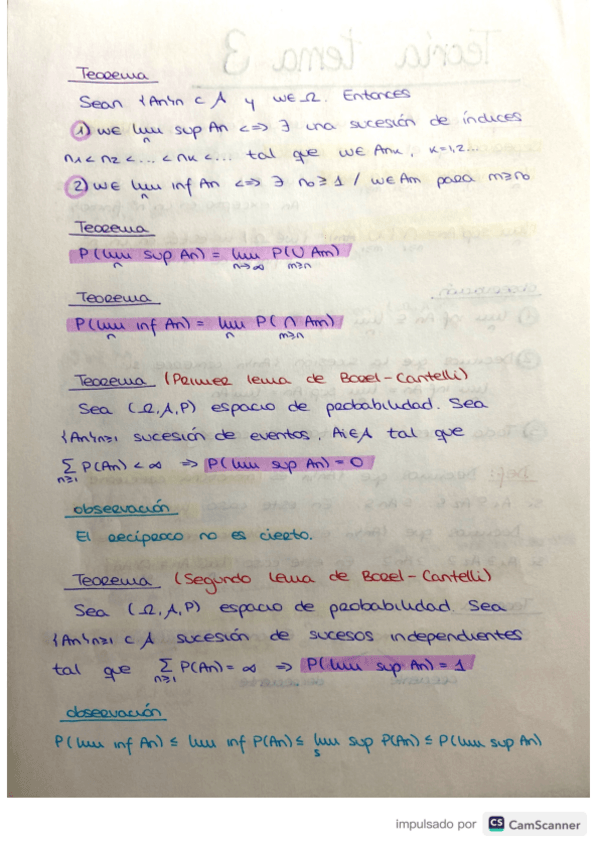 Teorema
Sean {An}n ⊂ A y w∈Ω. Entonces
1) w∈ lim sup An <=> ∃ una sucesión de índices
n
n1 < n2 < ... < nk < ... tal que w∈Ank, k=1,2...
2) w∈ lim inf An <=> ∃ n0 ≥ 1 / w∈Am para m≥n0
n
Teorema
P(lim sup An) = lim P(∪ Am)
n n→∞ m≥n
Teorema
P(lim inf An) = lim P(∩ Am)
n n m≥n
Teorema (Primer lema de Borel-Cantelli)
Sea (Ω,A,P) espacio de probabilidad. Sea
{An}n≥1 sucesión de eventos, Ai∈A tal que
∑ P(An) < ∞ => P(lim sup An) = 0
n≥1
observación
El recíproco no es cierto.
Teorema (Segundo lema de Borel-Cantelli)
Sea (Ω,A,P) espacio de probabilidad. Sea
{An}n≥1 ⊂ A sucesión de sucesos independientes
tal que ∑ P(An) = ∞ => P(lim sup An) = 1
n≥1
observación
P(lim inf An) ≤ lim inf P(An) ≤ lim sup P(An) ≤ P(lim sup An)
s
impulsado por CS CamScanner